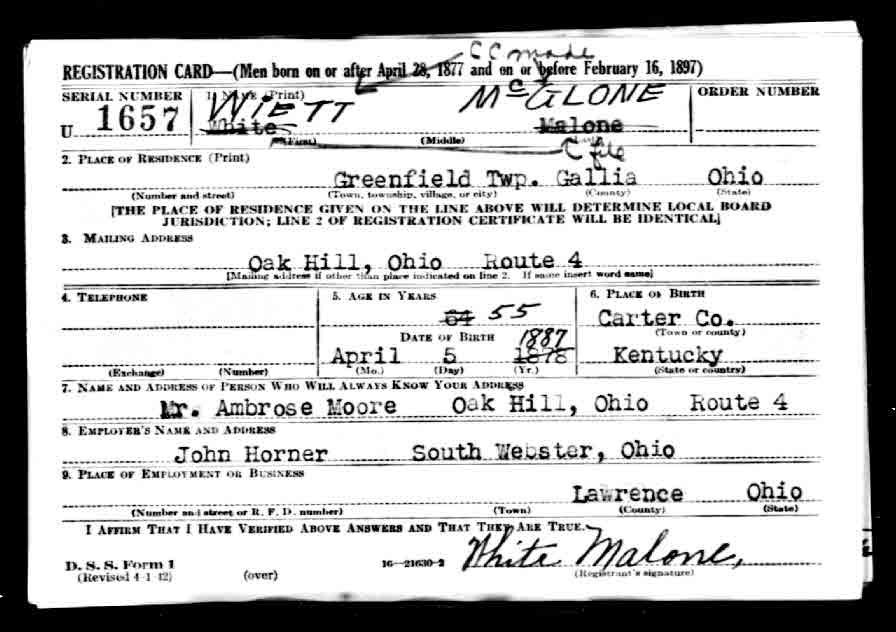 CC made
REGISTRATION CARD—(Men born on or after April 28, 1877 and on or before February 16, 1897)
SERIAL NUMBER 1. NAME (Print) ORDER NUMBER
WIETT McGLONE
U 1657 White Malone
(First) (Middle) (Last)
C file
2. PLACE OF RESIDENCE (Print)
Greenfield Twp. Gallia Ohio
(Number and street) (Town, township, village, or city) (County) (State)
[THE PLACE OF RESIDENCE GIVEN ON THE LINE ABOVE WILL DETERMINE LOCAL BOARD
JURISDICTION; LINE 2 OF REGISTRATION CERTIFICATE WILL BE IDENTICAL]
3. MAILING ADDRESS
Oak Hill, Ohio Route 4
[Mailing address if other than place indicated on line 2. If same insert word same]
4. TELEPHONE 5. AGE IN YEARS 6. PLACE OF BIRTH
64 55 Carter Co.
(Town or county)
DATE OF BIRTH 1887
April 5 1878 Kentucky
(Exchange) (Number) (Mo.) (Day) (Yr.) (State or country)
7. NAME AND ADDRESS OF PERSON WHO WILL ALWAYS KNOW YOUR ADDRESS
Mr. Ambrose Moore Oak Hill, Ohio Route 4
8. EMPLOYER'S NAME AND ADDRESS
John Horner South Webster, Ohio
9. PLACE OF EMPLOYMENT OR BUSINESS
Lawrence Ohio
(Number and street or R. F. D. number) (Town) (County) (State)
I AFFIRM THAT I HAVE VERIFIED ABOVE ANSWERS AND THAT THEY ARE TRUE.
D. S. S. Form 1
(Revised 4-1-42) (over) 16—21630-2 White Malone,
(Registrant's signature)